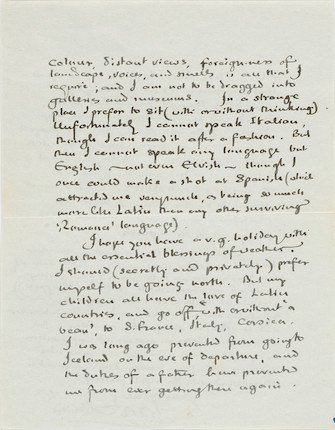 colour, distant views, foreign-ness of
landscape, voices, and smells is all that I
require; and I am not to be dragged into
galleries and museums. In a strange
place I prefer to sit (with or without thinking).
Unfortunately I cannot speak Italian,
though I can read it after a fashion. But
then I cannot speak any language but
English – not even Elvish – though I
once could make a shot at Spanish (which
attracted me very much, as being so much
more like Latin than any other surviving
'Romance' language).
I hope you have a v.g. holiday with
all the essential blessings of weather.
I should (secretly and privately) prefer
myself to be going north. But my
children all have the love of Latin
countries, and go off, with or without 'a
bean', to S. France, Italy, Corsica.
I was long ago prevented from going to
Iceland on the eve of departure, and
the duties of a father have prevented
me from ever getting there again.